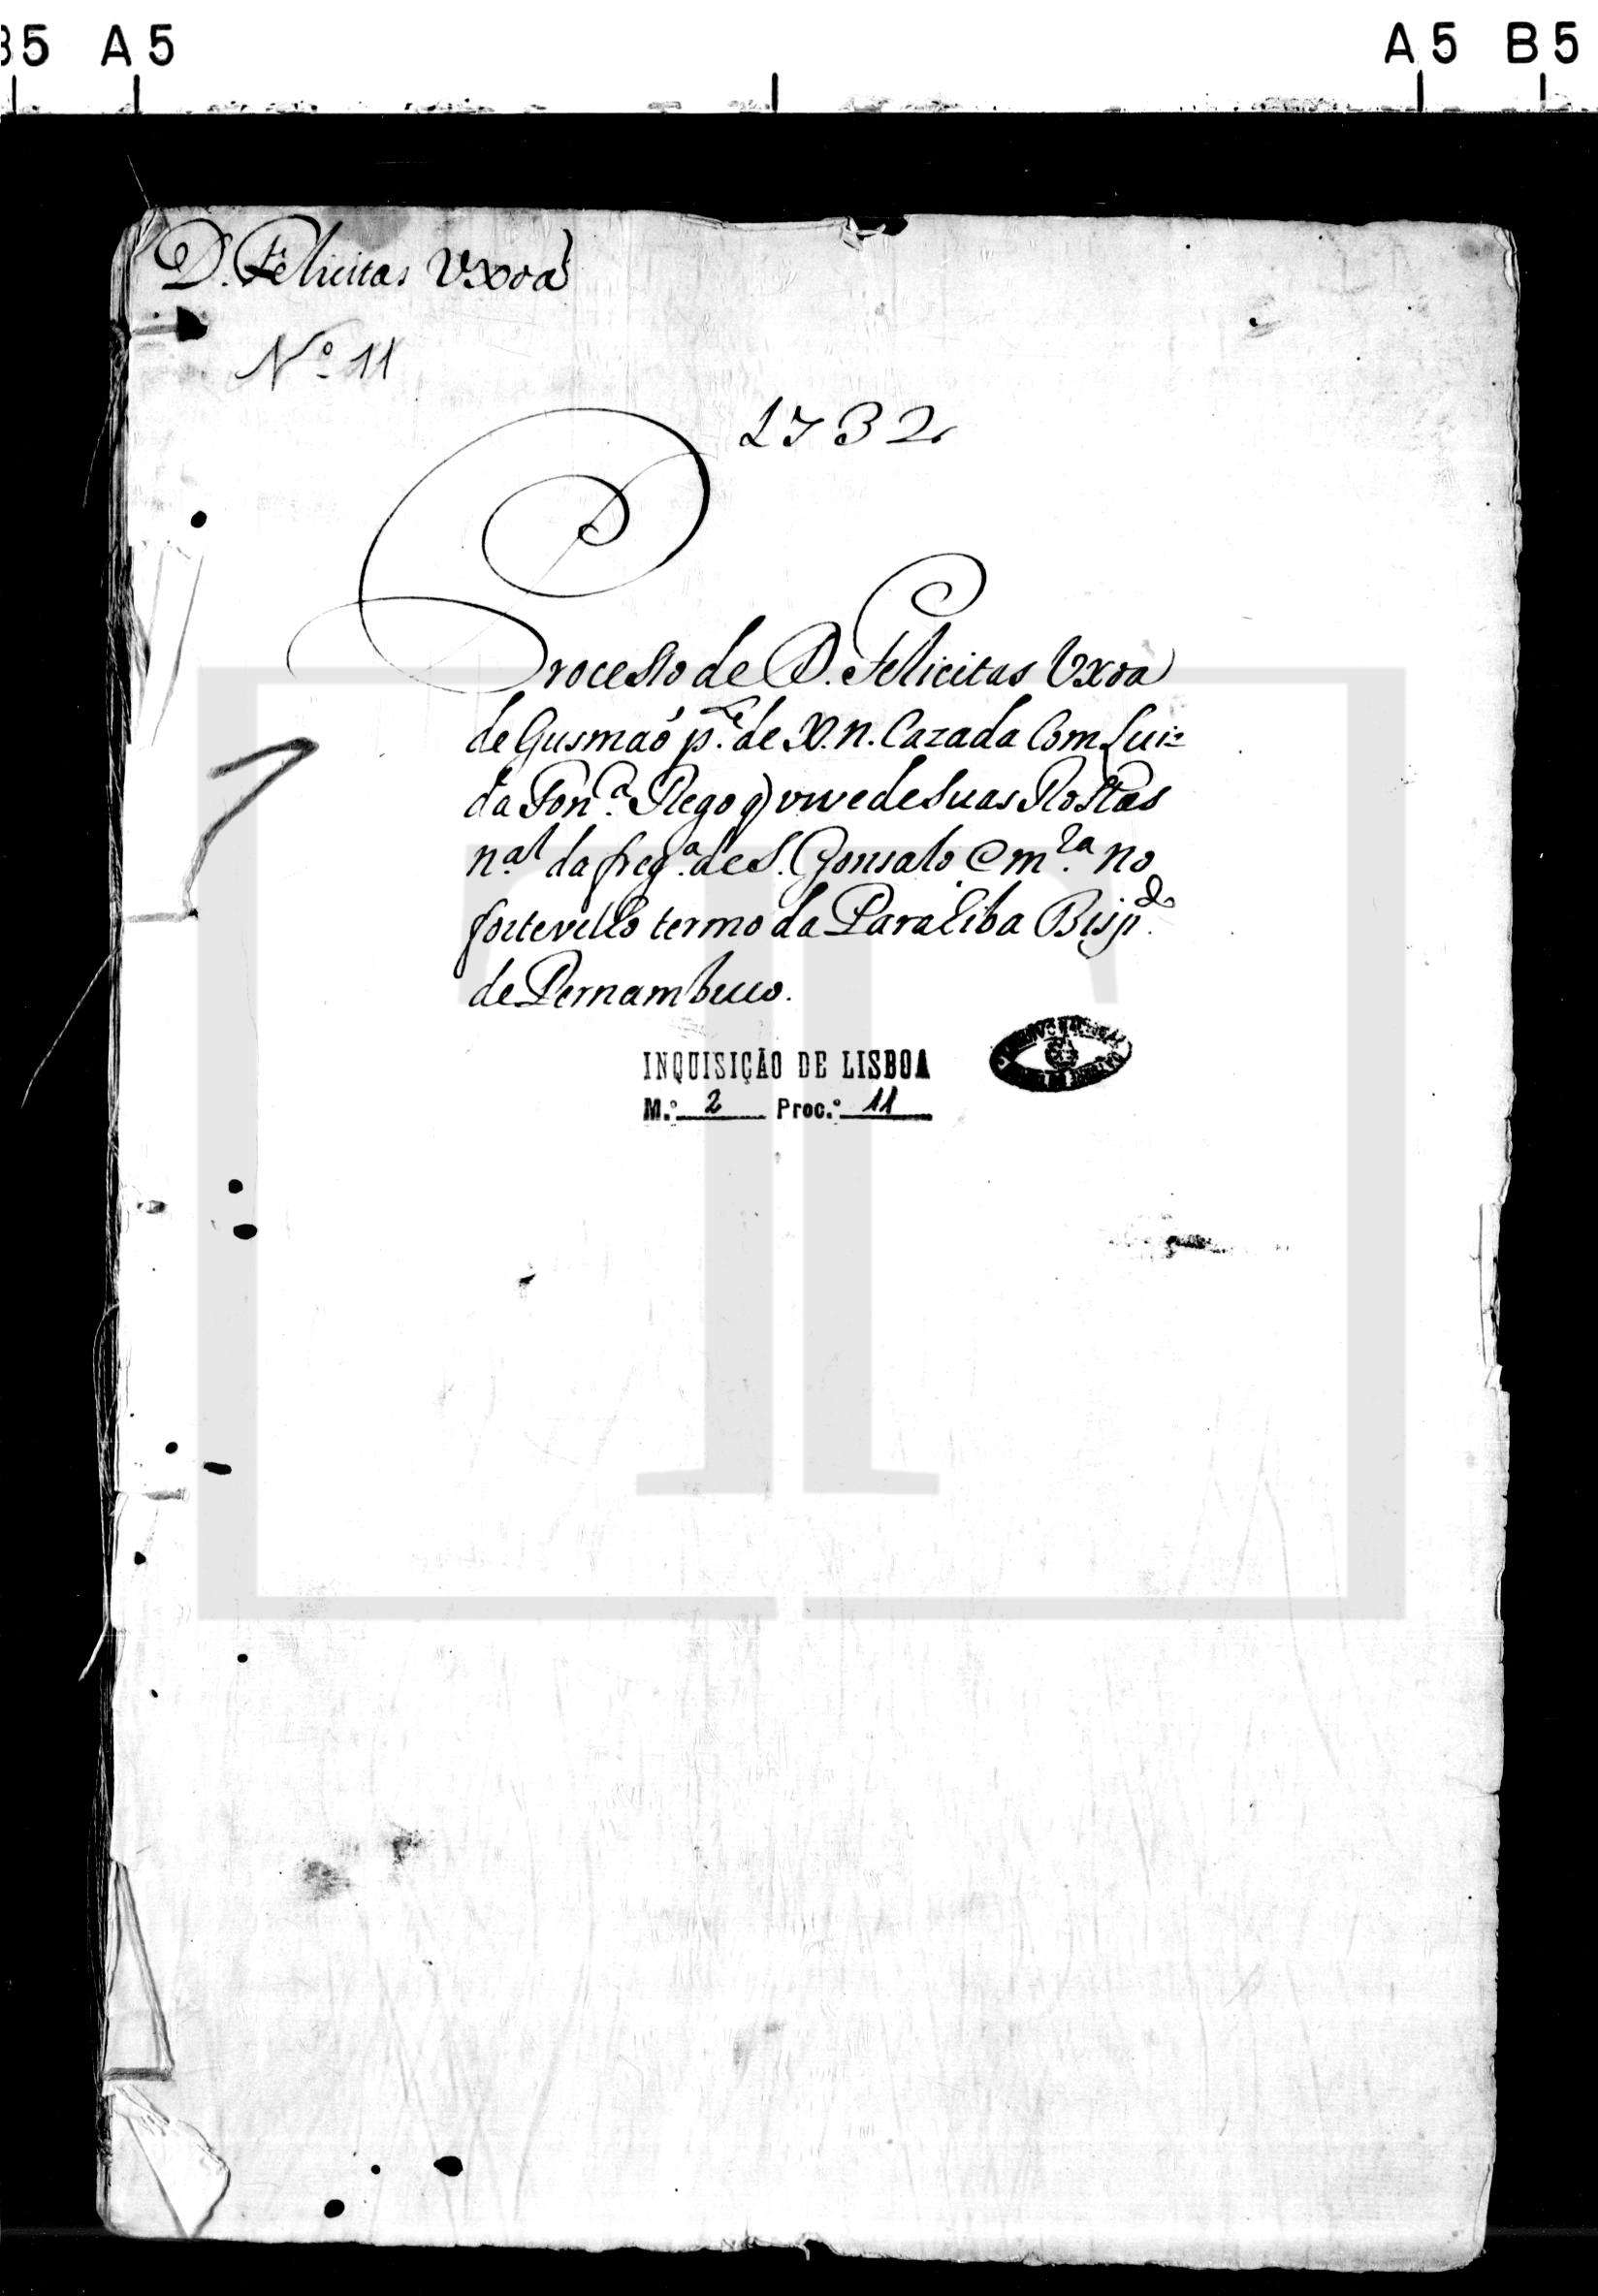 B5 A5 A5 B5
D. Felicitas Uxoa
Nº 11
1732
Processo de D. Felicitas Uxoa
de Gusmaõ p.te de X. n. Cazada Com Luiz
da Fon.ca Rego q vive de suas Rossas
n.al da freg.a de S. Gonsalo e m.ra no
forte vello termo da Paraiba Bisp.do
de Pernambuco.
INQUISIÇÃO DE LISBOA
M.º 2 Proc.º 11